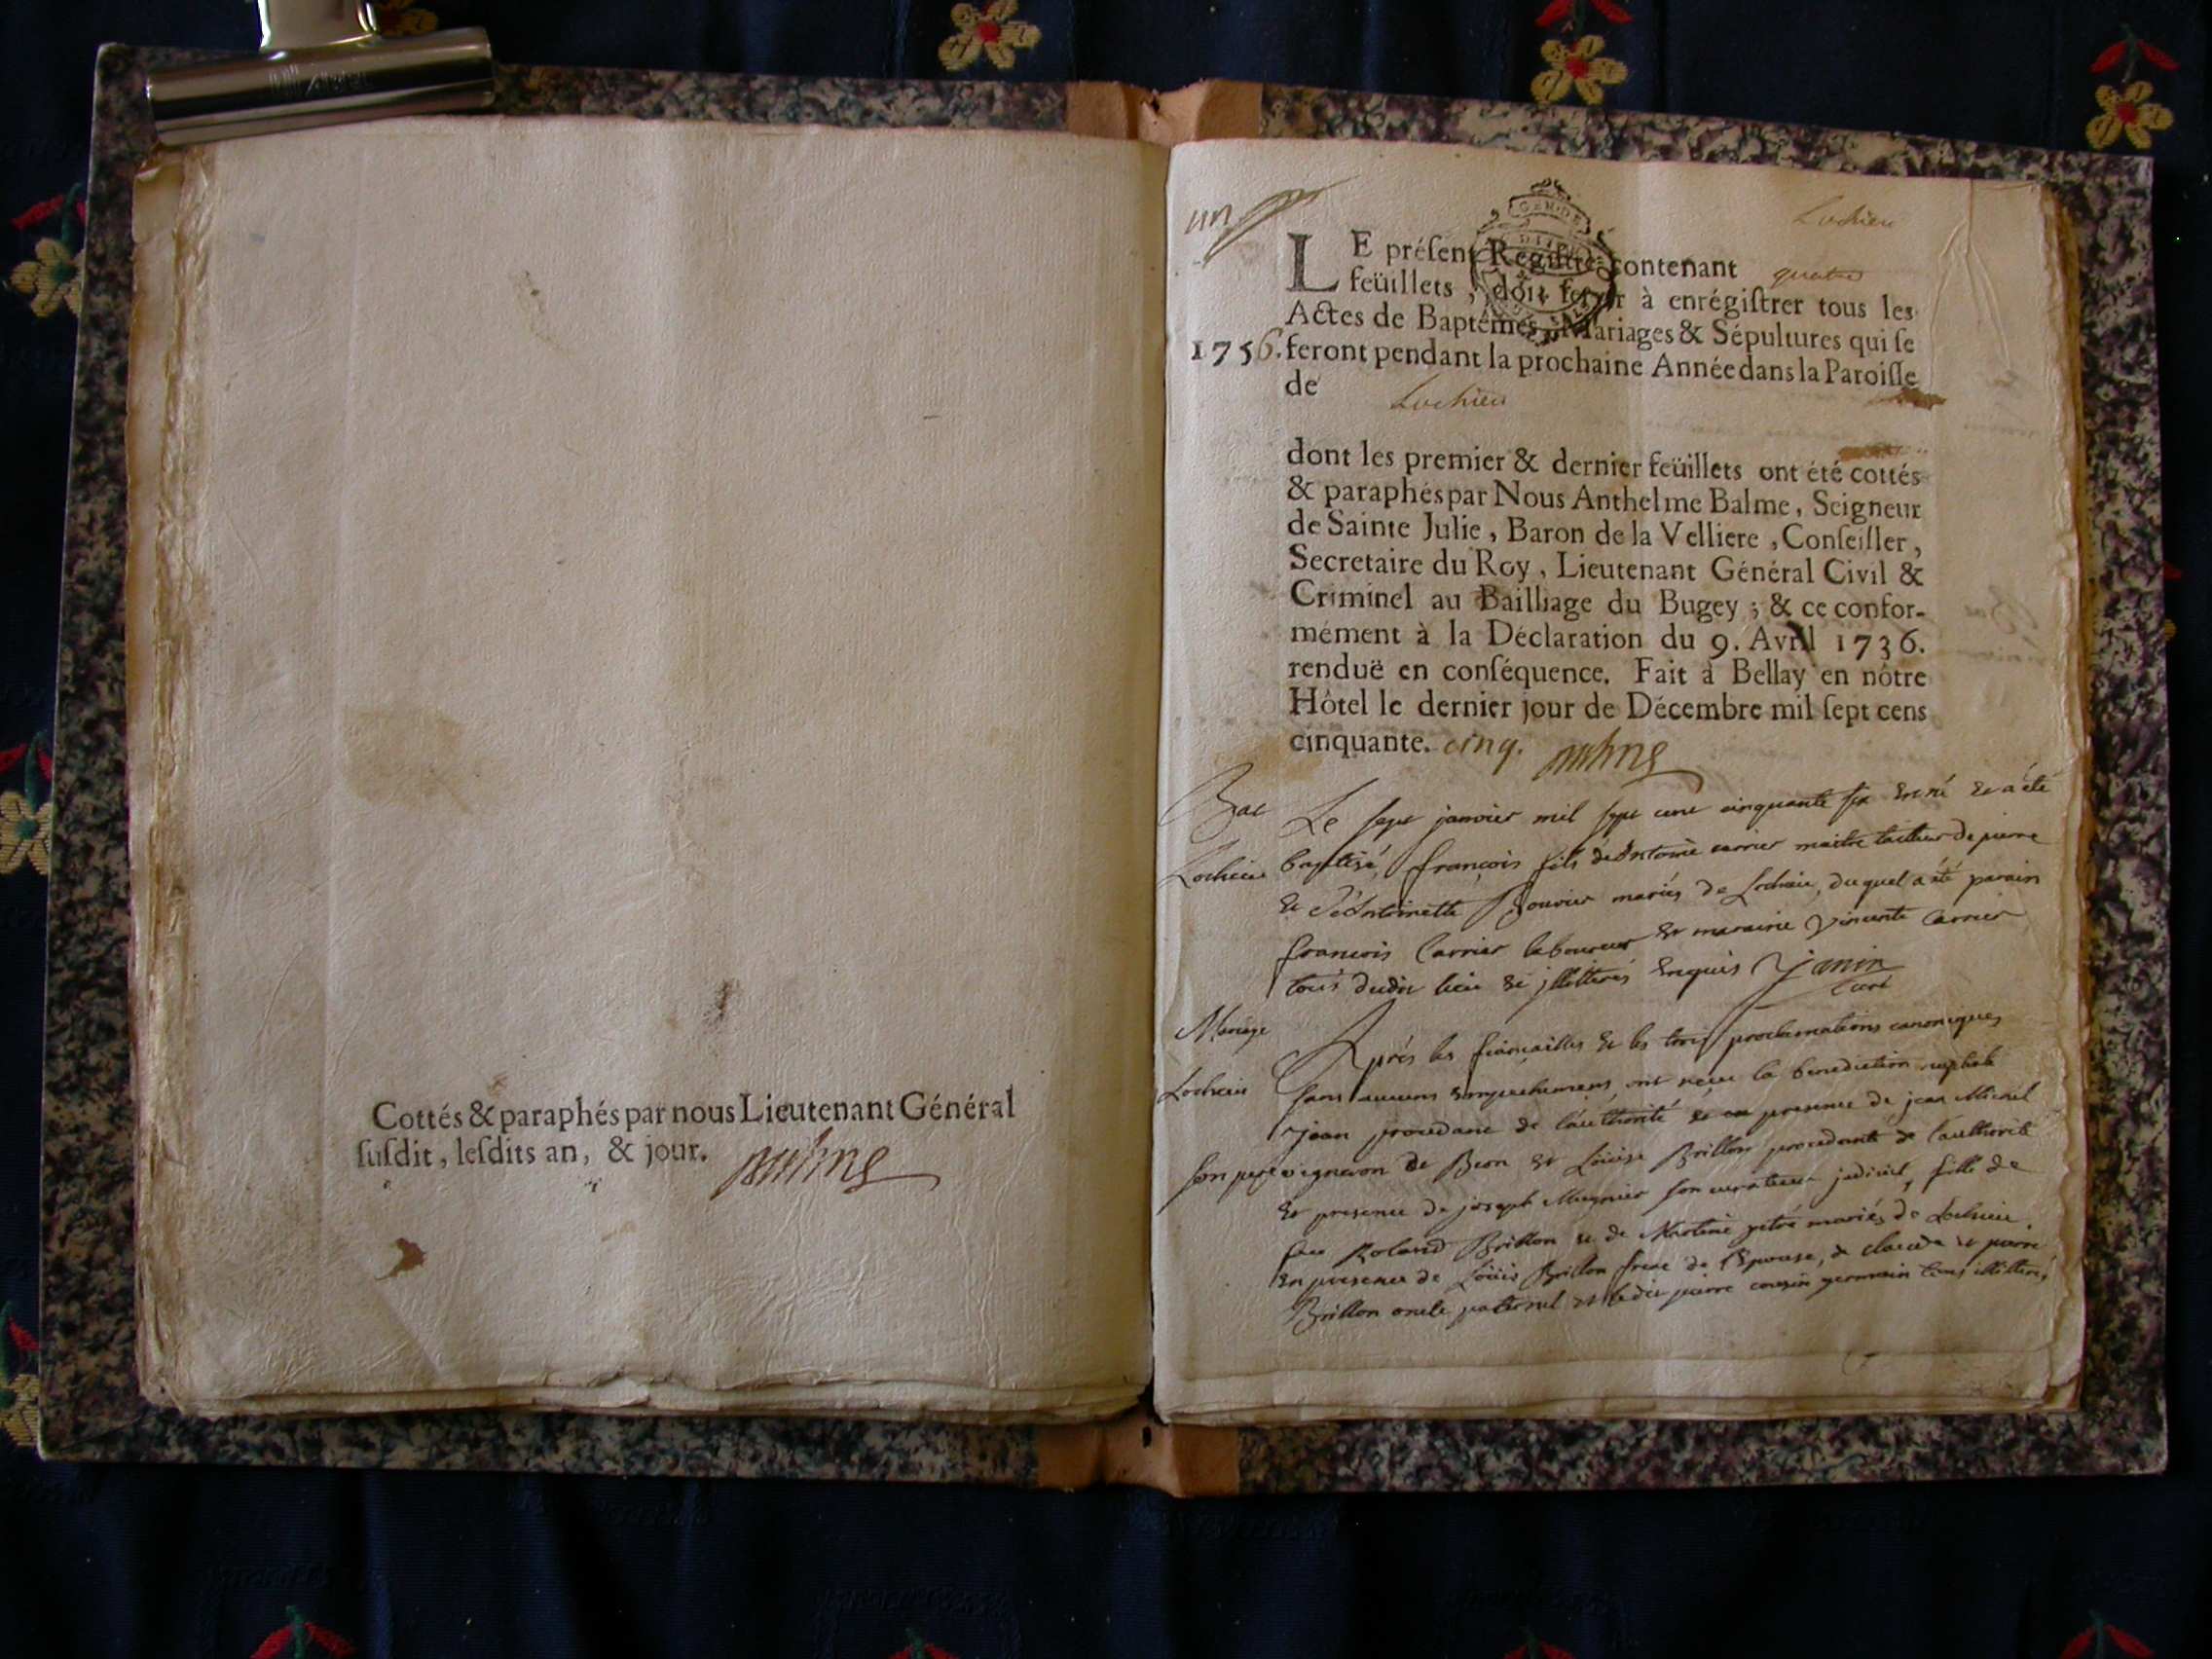 Cottés & paraphés par nous Lieutenant Général
ſuſdit, leſdits an, & jour.
un
Lochieu
LE préſent Regiſtre contenant quatre
feüillets, doit ſervir à enrégiſtrer tous les
Actes de Baptêmes, Mariages & Sépultures qui ſe
1756. feront pendant la prochaine Année dans la Paroiſſe
de Lochieu
dont les premier & dernier feüillets ont été cottés
& paraphés par Nous Anthelme Balme, Seigneur
de Sainte Julie, Baron de la Velliere, Conſeiller,
Secretaire du Roy, Lieutenant Général Civil &
Criminel au Bailliage du Bugey; & ce confor-
mément à la Déclaration du 9. Avril 1736.
renduë en conſéquence. Fait à Bellay en nôtre
Hôtel le dernier jour de Décembre mil ſept cens
cinquante. cinq.
Bat Le sept janvier mil sept cent cinquante six est né et a été
Lochieu baptisé, françois fils d'Antoine carrier maitre tailleur de pierre
et d'Antoinette Bouvier mariés de Lochieu, duquel a été parain
francois Carrier laboureur et maraine Vincente Carrier
tous dudit lieu et jllitterés enquis Janin
Curé
Mariage Aprés les fiançailles et les trois proclamations canoniques
Lochieu sans aucuns empechemens, ont reçue la benediction nuptiale
jean procedant de l'authorité et en presence de jean Michel
son pere vigneron de Beon et Loüise Brillon procedante de l'authorité
et presence de joseph Mugnier son curateur judiciel, fille de
feu Roland Brillon et de Martine mariés de Lochieu.
En presence de Loüis Brillon frere de l'Epouse, de claude et pierre
Brillon oncle paternel et ledit pierre cousin germain tous illitterés